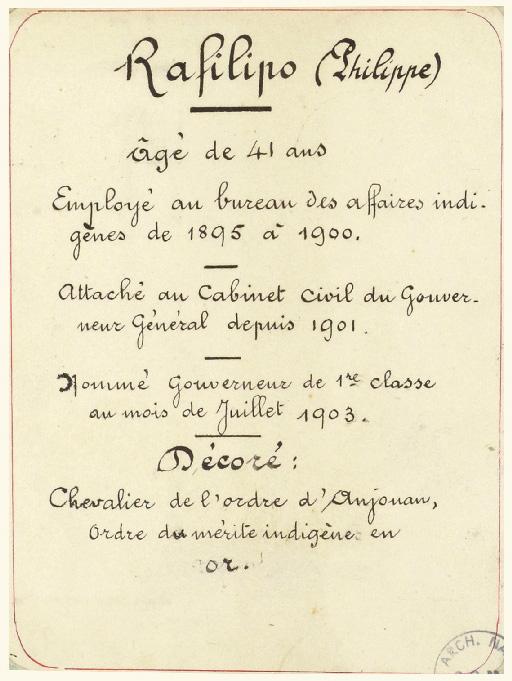 Rafilipo (Philippe)
âgé de 41 ans
Employé au bureau des affaires indi-
gènes de 1895 à 1900.
Attaché au Cabinet civil du Gouver-
neur Général depuis 1901.
Nommé Gouverneur de 1re classe
au mois de Juillet 1903.
Décoré:
Chevalier de l'ordre d'Anjouan,
Ordre du mérite indigène en
or.
ARCH. NA